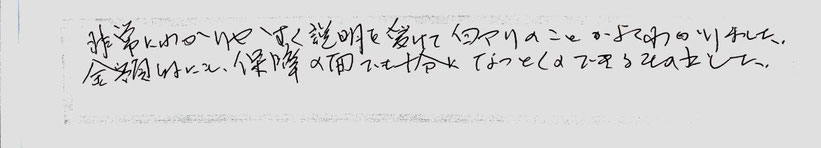 非常にわかりやすく説明を受けて白アリのことがよくわかりました。
金額的にも、保障の面でも十分になっとくのできるものでした。